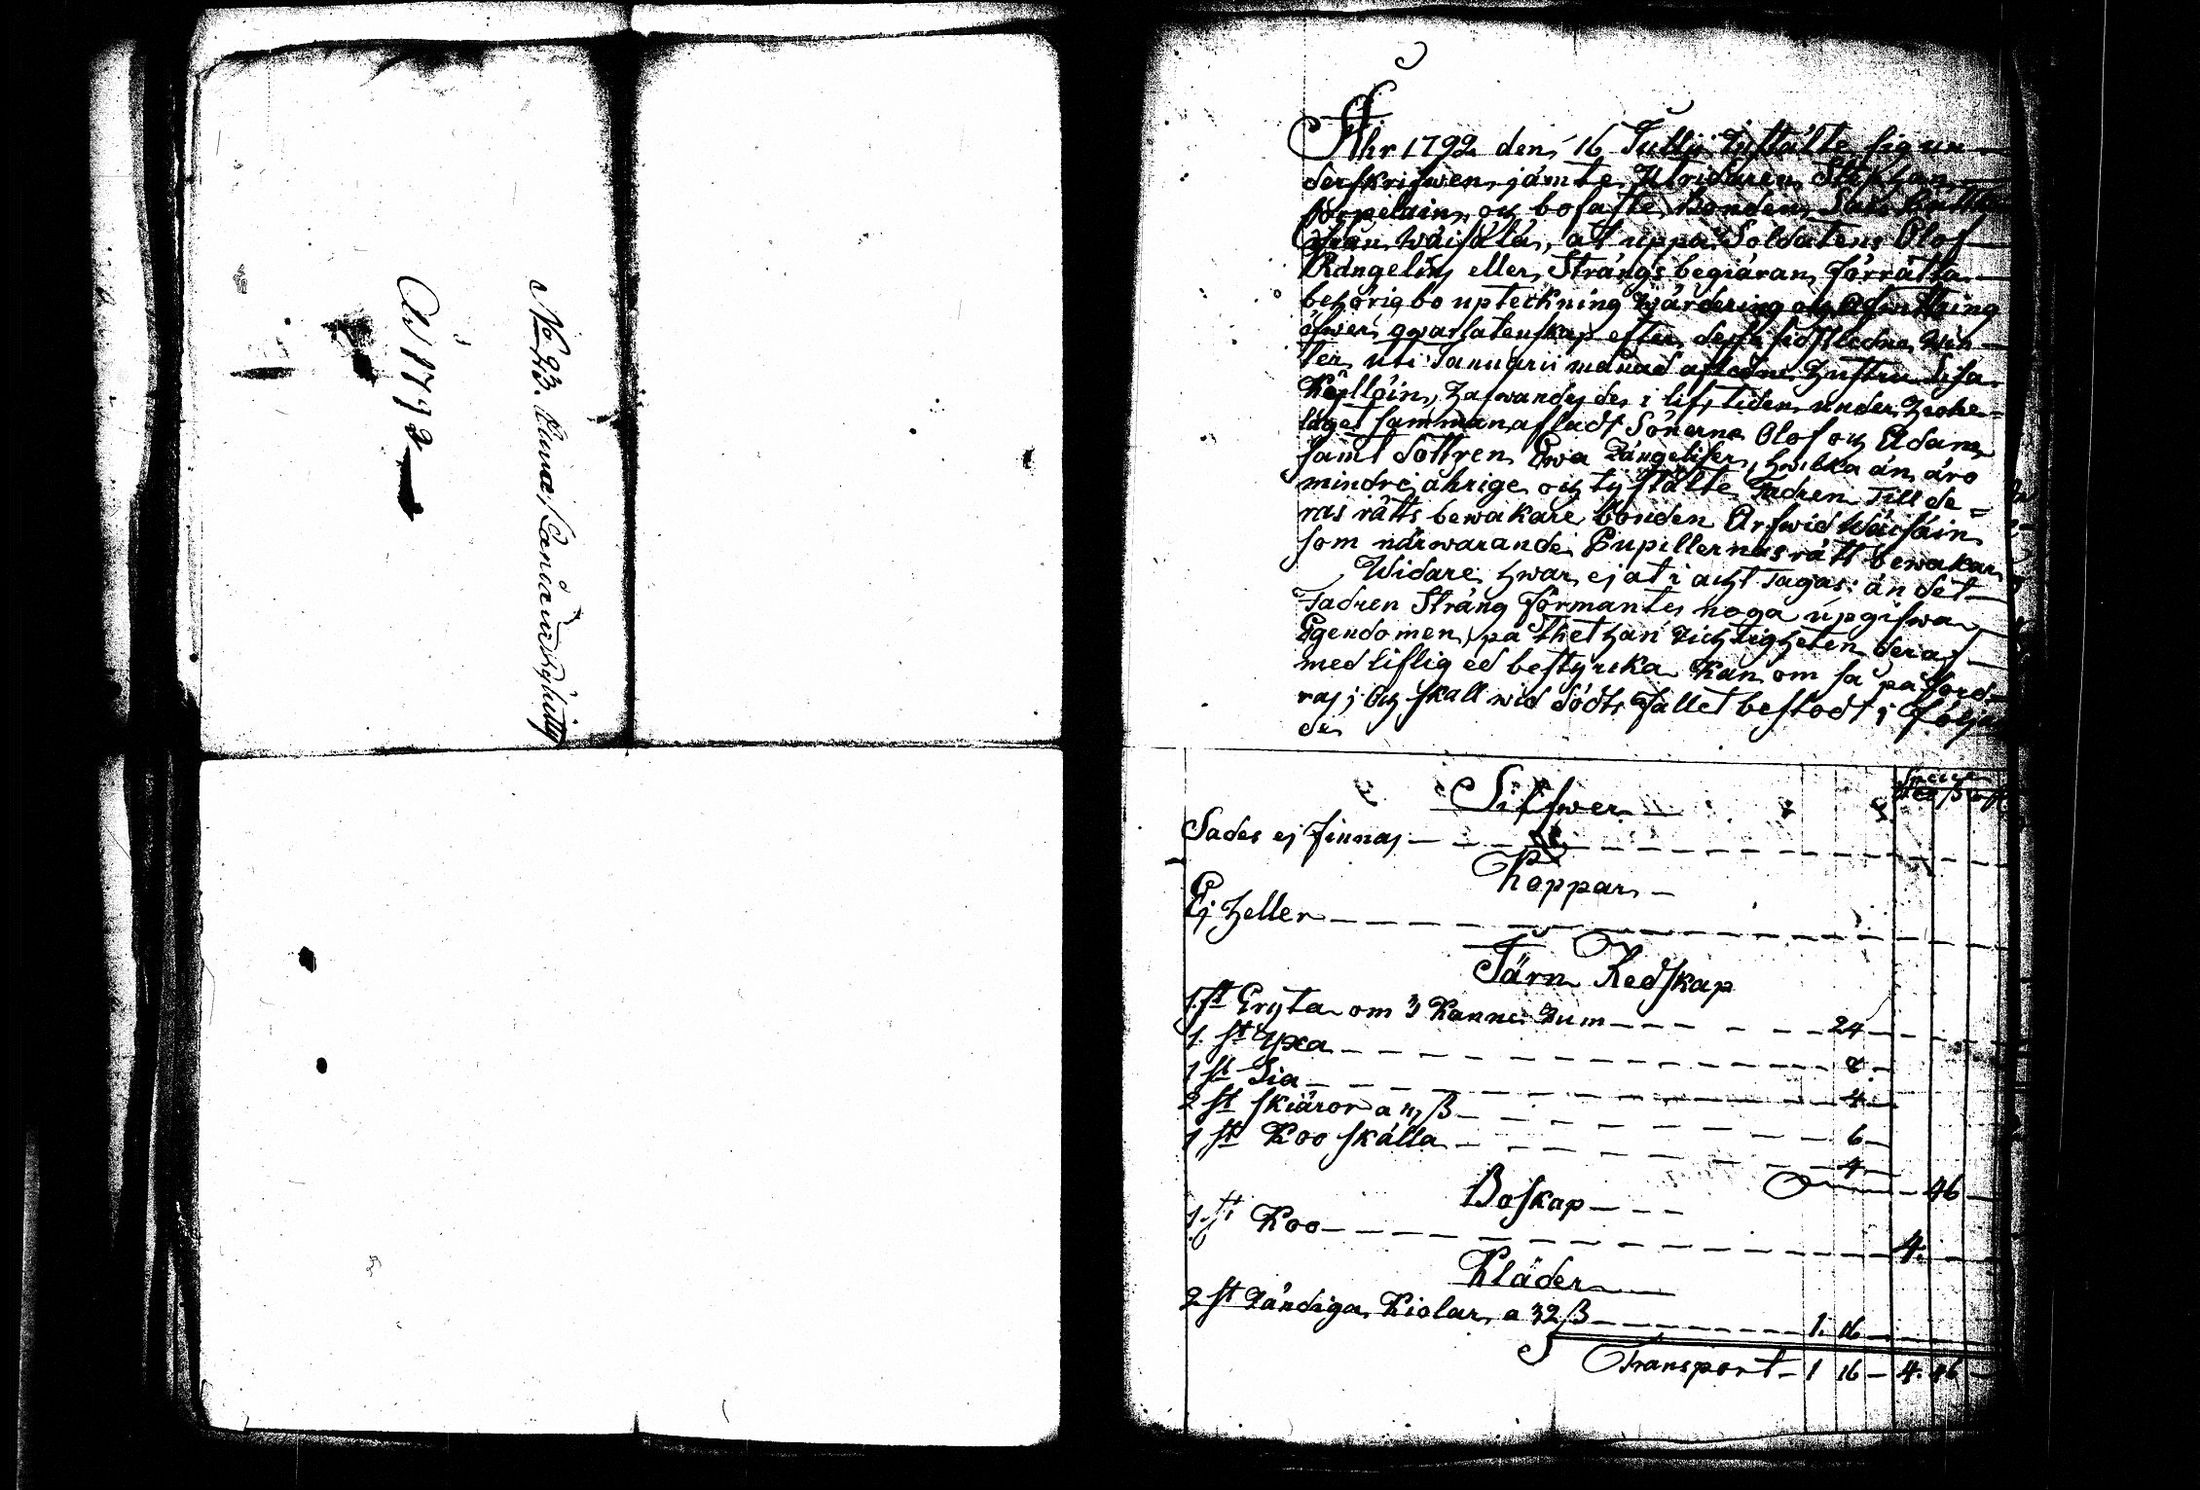 A° 1792
N° 23.
Åhr 1792 den 16 Jullii Instälte sig un
derskrifwen jämte Utridaren Stephan
och bofaste Bonden
från Wäisälä, at uppå Soldatens Olof
Rängelin eller Strängs begiäran förrätta
behörig bo upteckning Wärdering och
öfwer qwarlatenskap efter dess sidstledne Win
ter uti Januarii månad afledne Hustru Lisa
hafwandes de i lifstiden under Hione
laget sammanafladt Sönerne Olof och Adam
samt Dottren Ewa hwilka än äro
mindre åhrige och tystälte Fadren till de=
ras rätts bewakare bonden Arfwid Wäisäin
som närwarande Pupillernas rätt bewakar
Widare hwar ej at i acht tagas: än det
Fadren Sträng förmantes noga upgifwa
Egendomen, på thet han Richtigheten deraf
med liflig ed bestyrcka kan om så påford=
ras; och skall wid dödts fallet bestodt i följan
de
Silfwer
Sades ej finnas
Koppar
Ej heller
Järn Redskap
1 st Gryta om 3 Kannor Rum 24
1. st Yxa 8
1 st Lia 4
2 st skiäror a 3 ß 6
1 st Koo skälla 4
46
Boskap
1. st Koo 4.
Kläder
2 st Kiolar a 32 ß 1. 16
Transport 1 16 4. 46